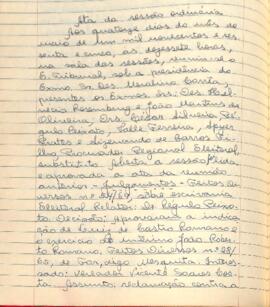 Ata da sessão ordinária
Aos quatorze dias do mês de
maio de um mil novecentos e ses-
senta e cinco, às dezessete horas,
na sala das sessões, reuniu-se o
E. Tribunal, sob a presidência do
Exmo. Sr. Des. Corrêa,
presentes os Exmos. Srs. Des.
Rosenburg e João Martins de
Oliveira; Drs. Cesar Silveira, Ré-
gulo Peixoto, Valle Ferreira,
Prates e de Barros Fi-
lho, Procurador Regional Eleitoral
substituto. Aberta a sessão, lida
e aprovada a ata da reunião
anterior. - Julgamentos - Feitos Di-
versos nº /64, sôbre escrivania
Eleitoral. Relator: Dr. Régulo Peixo-
to. Decisão: aprovaram a indica-
ção de de Castro Romano e
o exercício do interino João
Romano. Feitos Diversos nº 28/
65, de Mesquita. Interes-
sado: Vereador Vicente Soares
Assunto: reclamação contra a